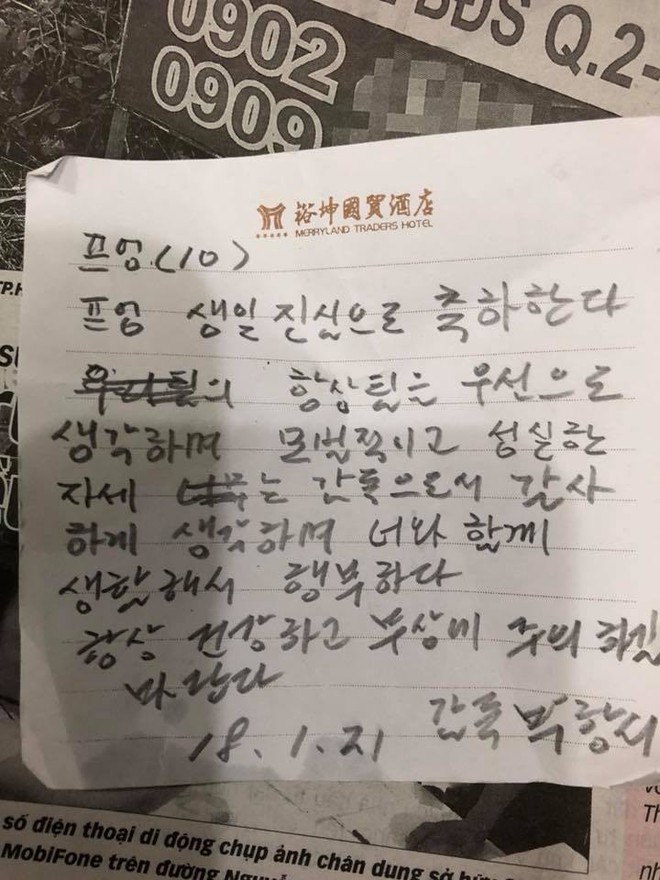 0902
0909
BĐS Q.2-
裕坤國貿酒店
MERRYLAND TRADERS HOTEL
프엉 (10)
프엉 생일 진심으로 축하한다
항상 팀을 우선으로
생각하며 모범적이고 성실한
자세는 감독으로서 감사
하게 생각하며 너와 함께
생활해서 행복하다
항상 건강하고 부상에 주의 하길
바란다
18. 1. 21
감독 박항서
số điện thoại di động chụp ảnh chân dung sở hữu
MobiFone trên đường